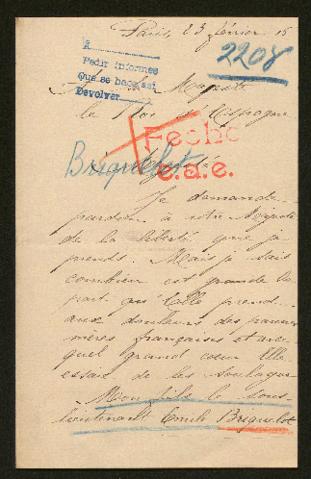 Paris, 23 février 15
2208
A
Pedir informes
Que se haga así
Devolver
Sa Majesté
le Roi d'Espagne
Fecho
e.a.e.
Briquelot
Je demande
pardon à votre Majesté
de la liberté que je
prends. Mais je sais
combien est grande la
part qu'Elle prend
aux douleurs des pauvres
mères françaises et avec
quel grand cœur Elle
essaie de les soulager
Mon fils le sous
lieutenant Briquelot